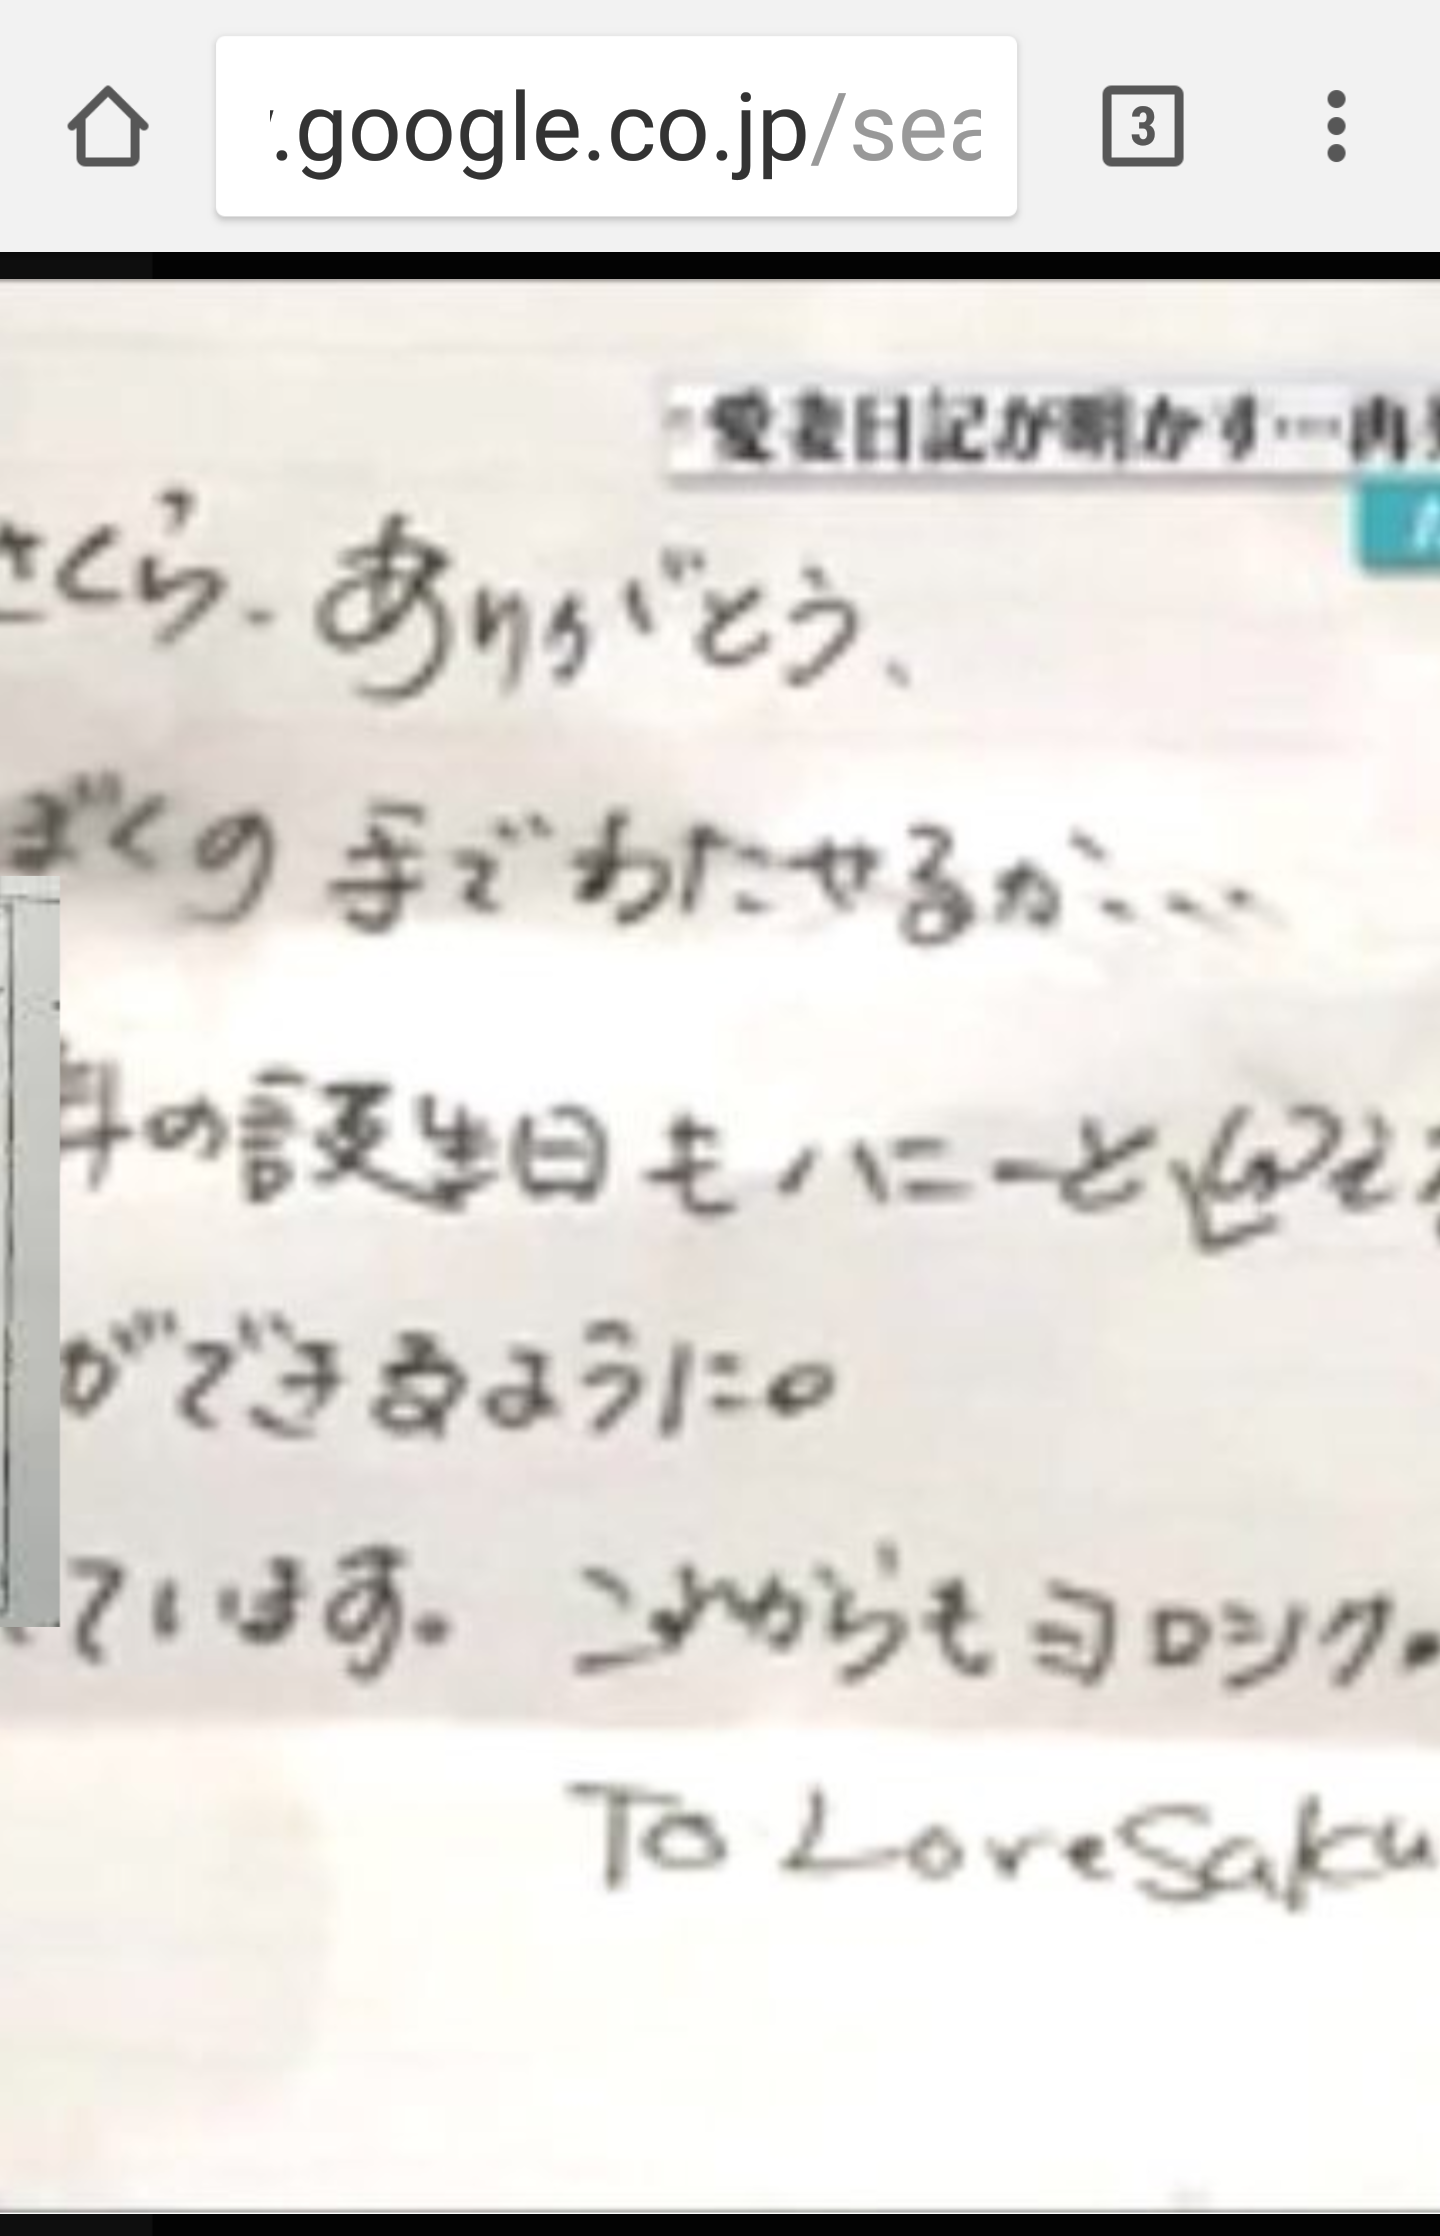 .google.co.jp/sea
3
愛妻日記が明かす…再
さくら、ありがとう、
ぼくの手でわたせるか…
の誕生日もハニーと
ができるように。
ています。これからもヨロシク。
To LoveSaku